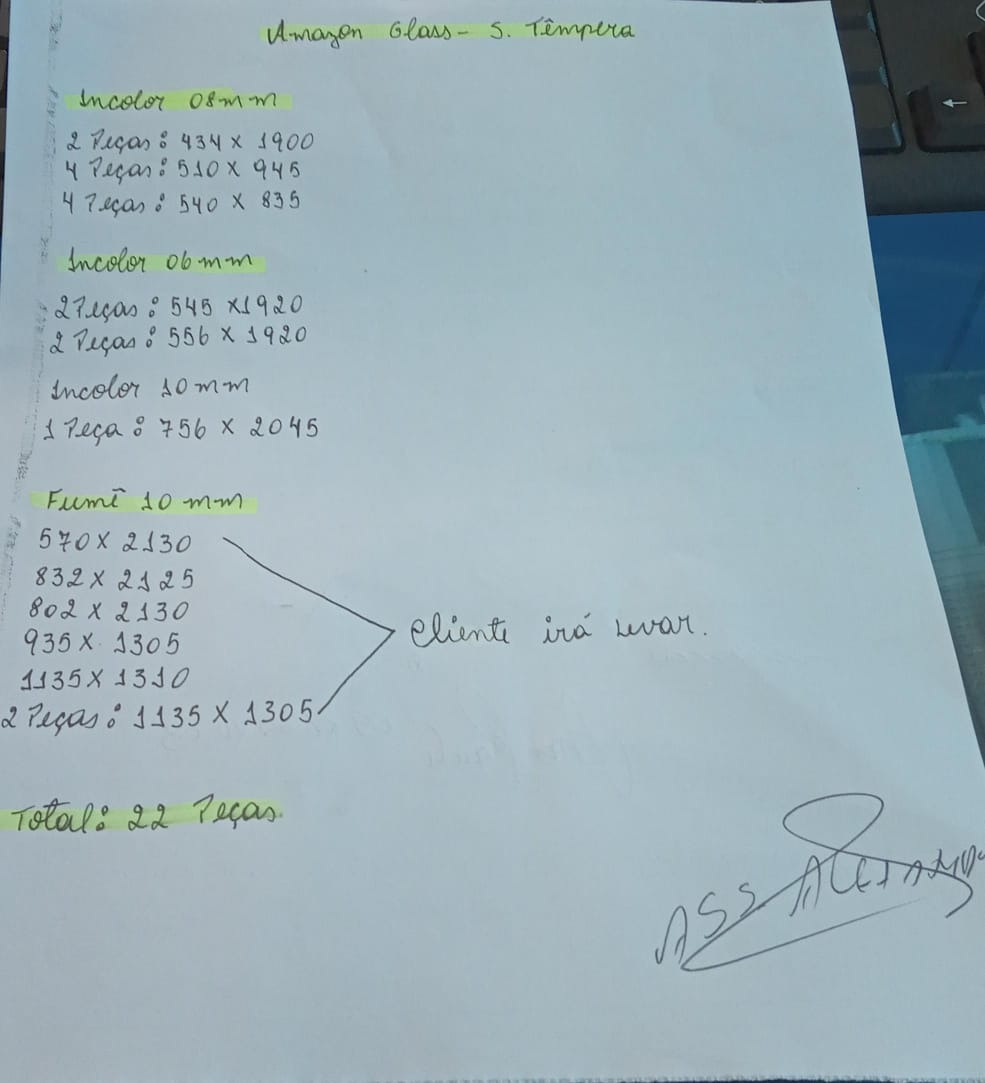 Amazon Glass - S. Têmpera
Incolor 08mm
2 Peças: 434 x 1900
4 Peças: 510 x 945
4 Peças: 540 x 835
Incolor 06mm
2 Peças: 545 x 1920
2 Peças: 556 x 1920
Incolor 10mm
1 Peça: 756 x 2045
Fumê 10mm
570 x 2130
832 x 2125
802 x 2130
935 x 1305
1135 x 1310
2 Peças: 1135 x 1305
Cliente irá levar.
Total: 22 Peças.
ASS